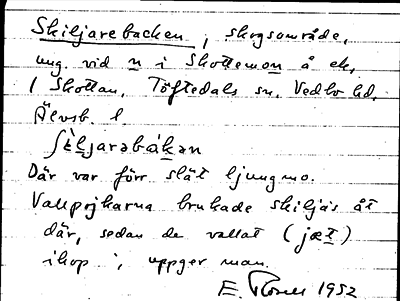 Skiljarebacken, skogsområde,
ung. vid n i Skottemon å ek,
1 Skottan, Töftedals sn. Vedbo hd.
Älvsb. l.
Där var förr slät ljungmo.
Vallpojkarna brukade skiljas åt
där, sedan de vallat (jæt)
ihop; uppger man.
E. 1952